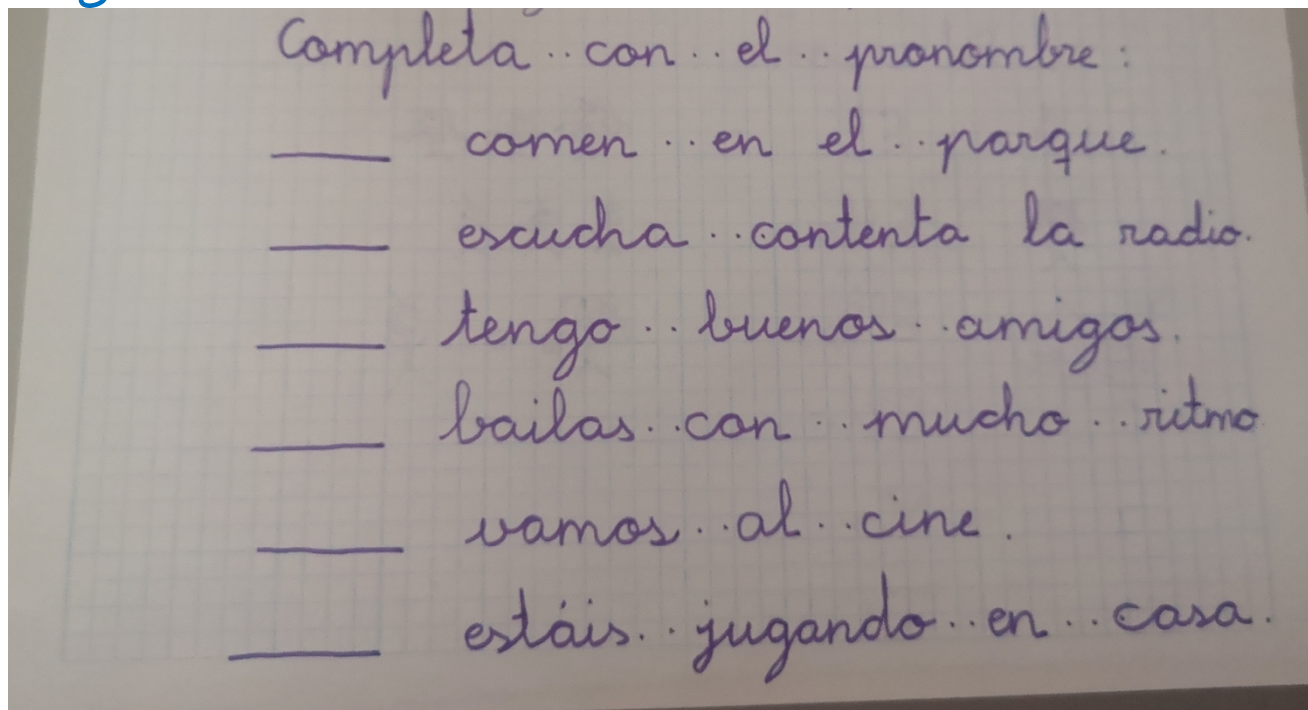 Completa con el pronombre:
____ comen en el parque.
____ escucha contenta la radio.
____ tengo buenos amigos.
____ bailas con mucho ritmo
____ vamos al cine.
____ estáis jugando en casa.